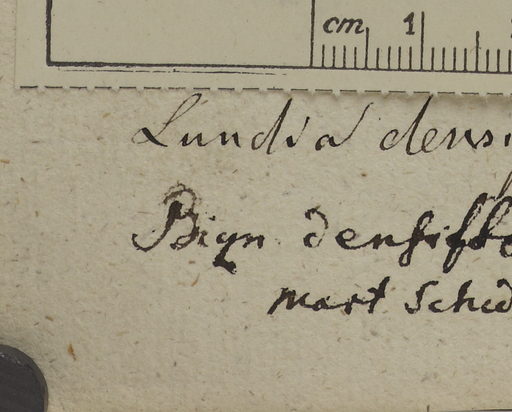 cm 1
Lundia densi
Bign densiflo
mart Sched